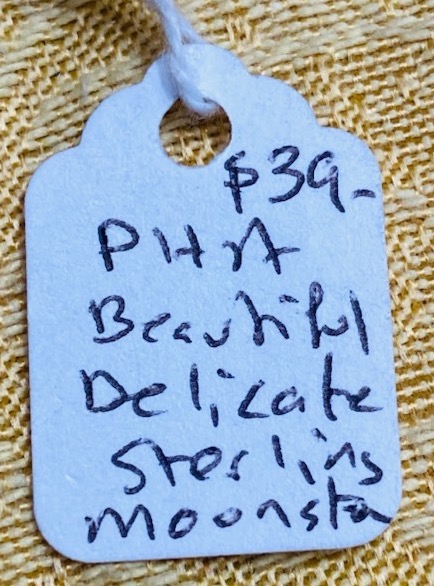 $39-
PHA
Beautiful
Delicate
Sterling
moonsta